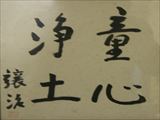 童心
浄土